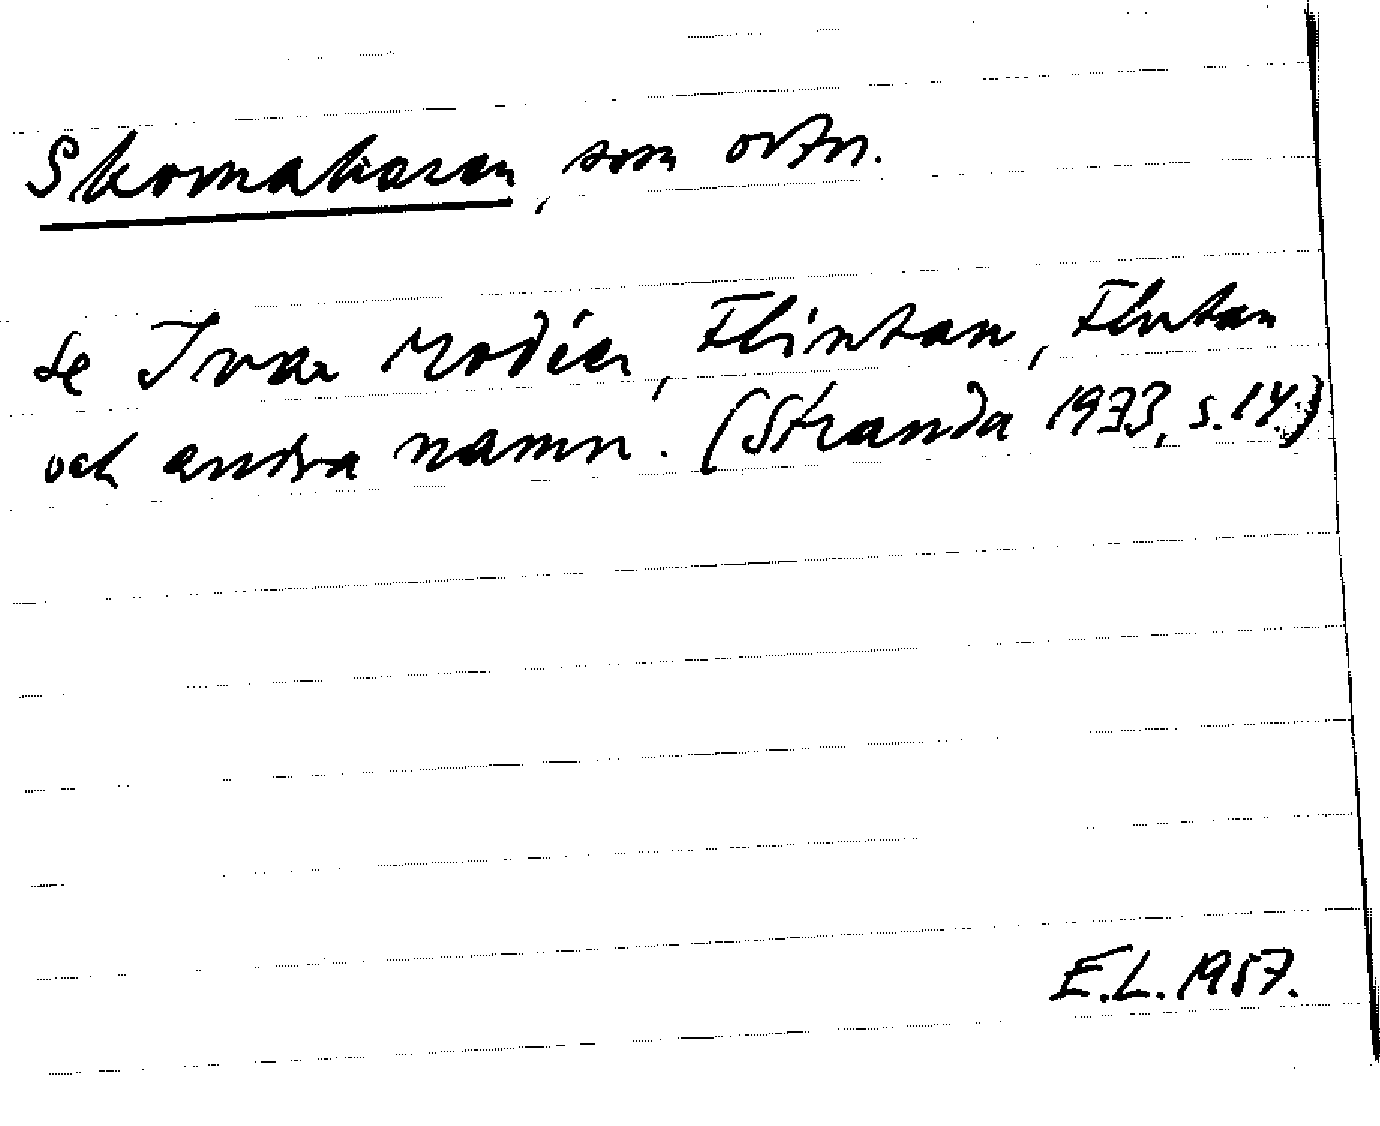 Skomakaren, som ortn.
Se Ivar Modéer, Flintan, Flutan
och andra namn. (Stranda 1933, s. 14.)
E.L. 1957.